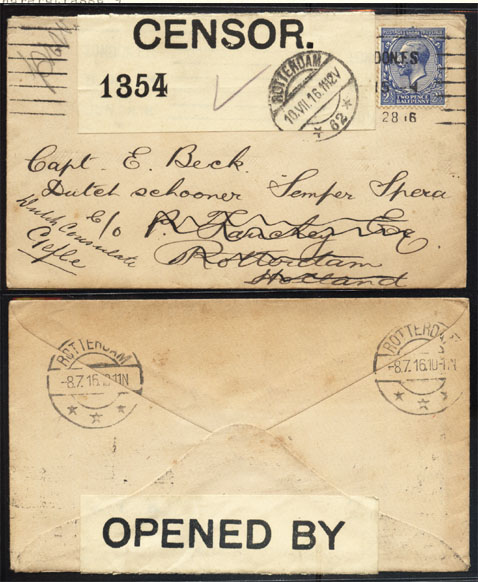 CENSOR.
1354
ROTTERDAM
10.VII.16.11-12V
62
TWO PENCE
HALFPENNY
Capt. E. Beck.
Dutch schooner Semper Spera
C/o
Dutch Consulate
Gefle
Rotterdam
Holland
ROTTERDAM
-8.7.16.10-11N
ROTTERDA
-8.7.16.10-
OPENED BY